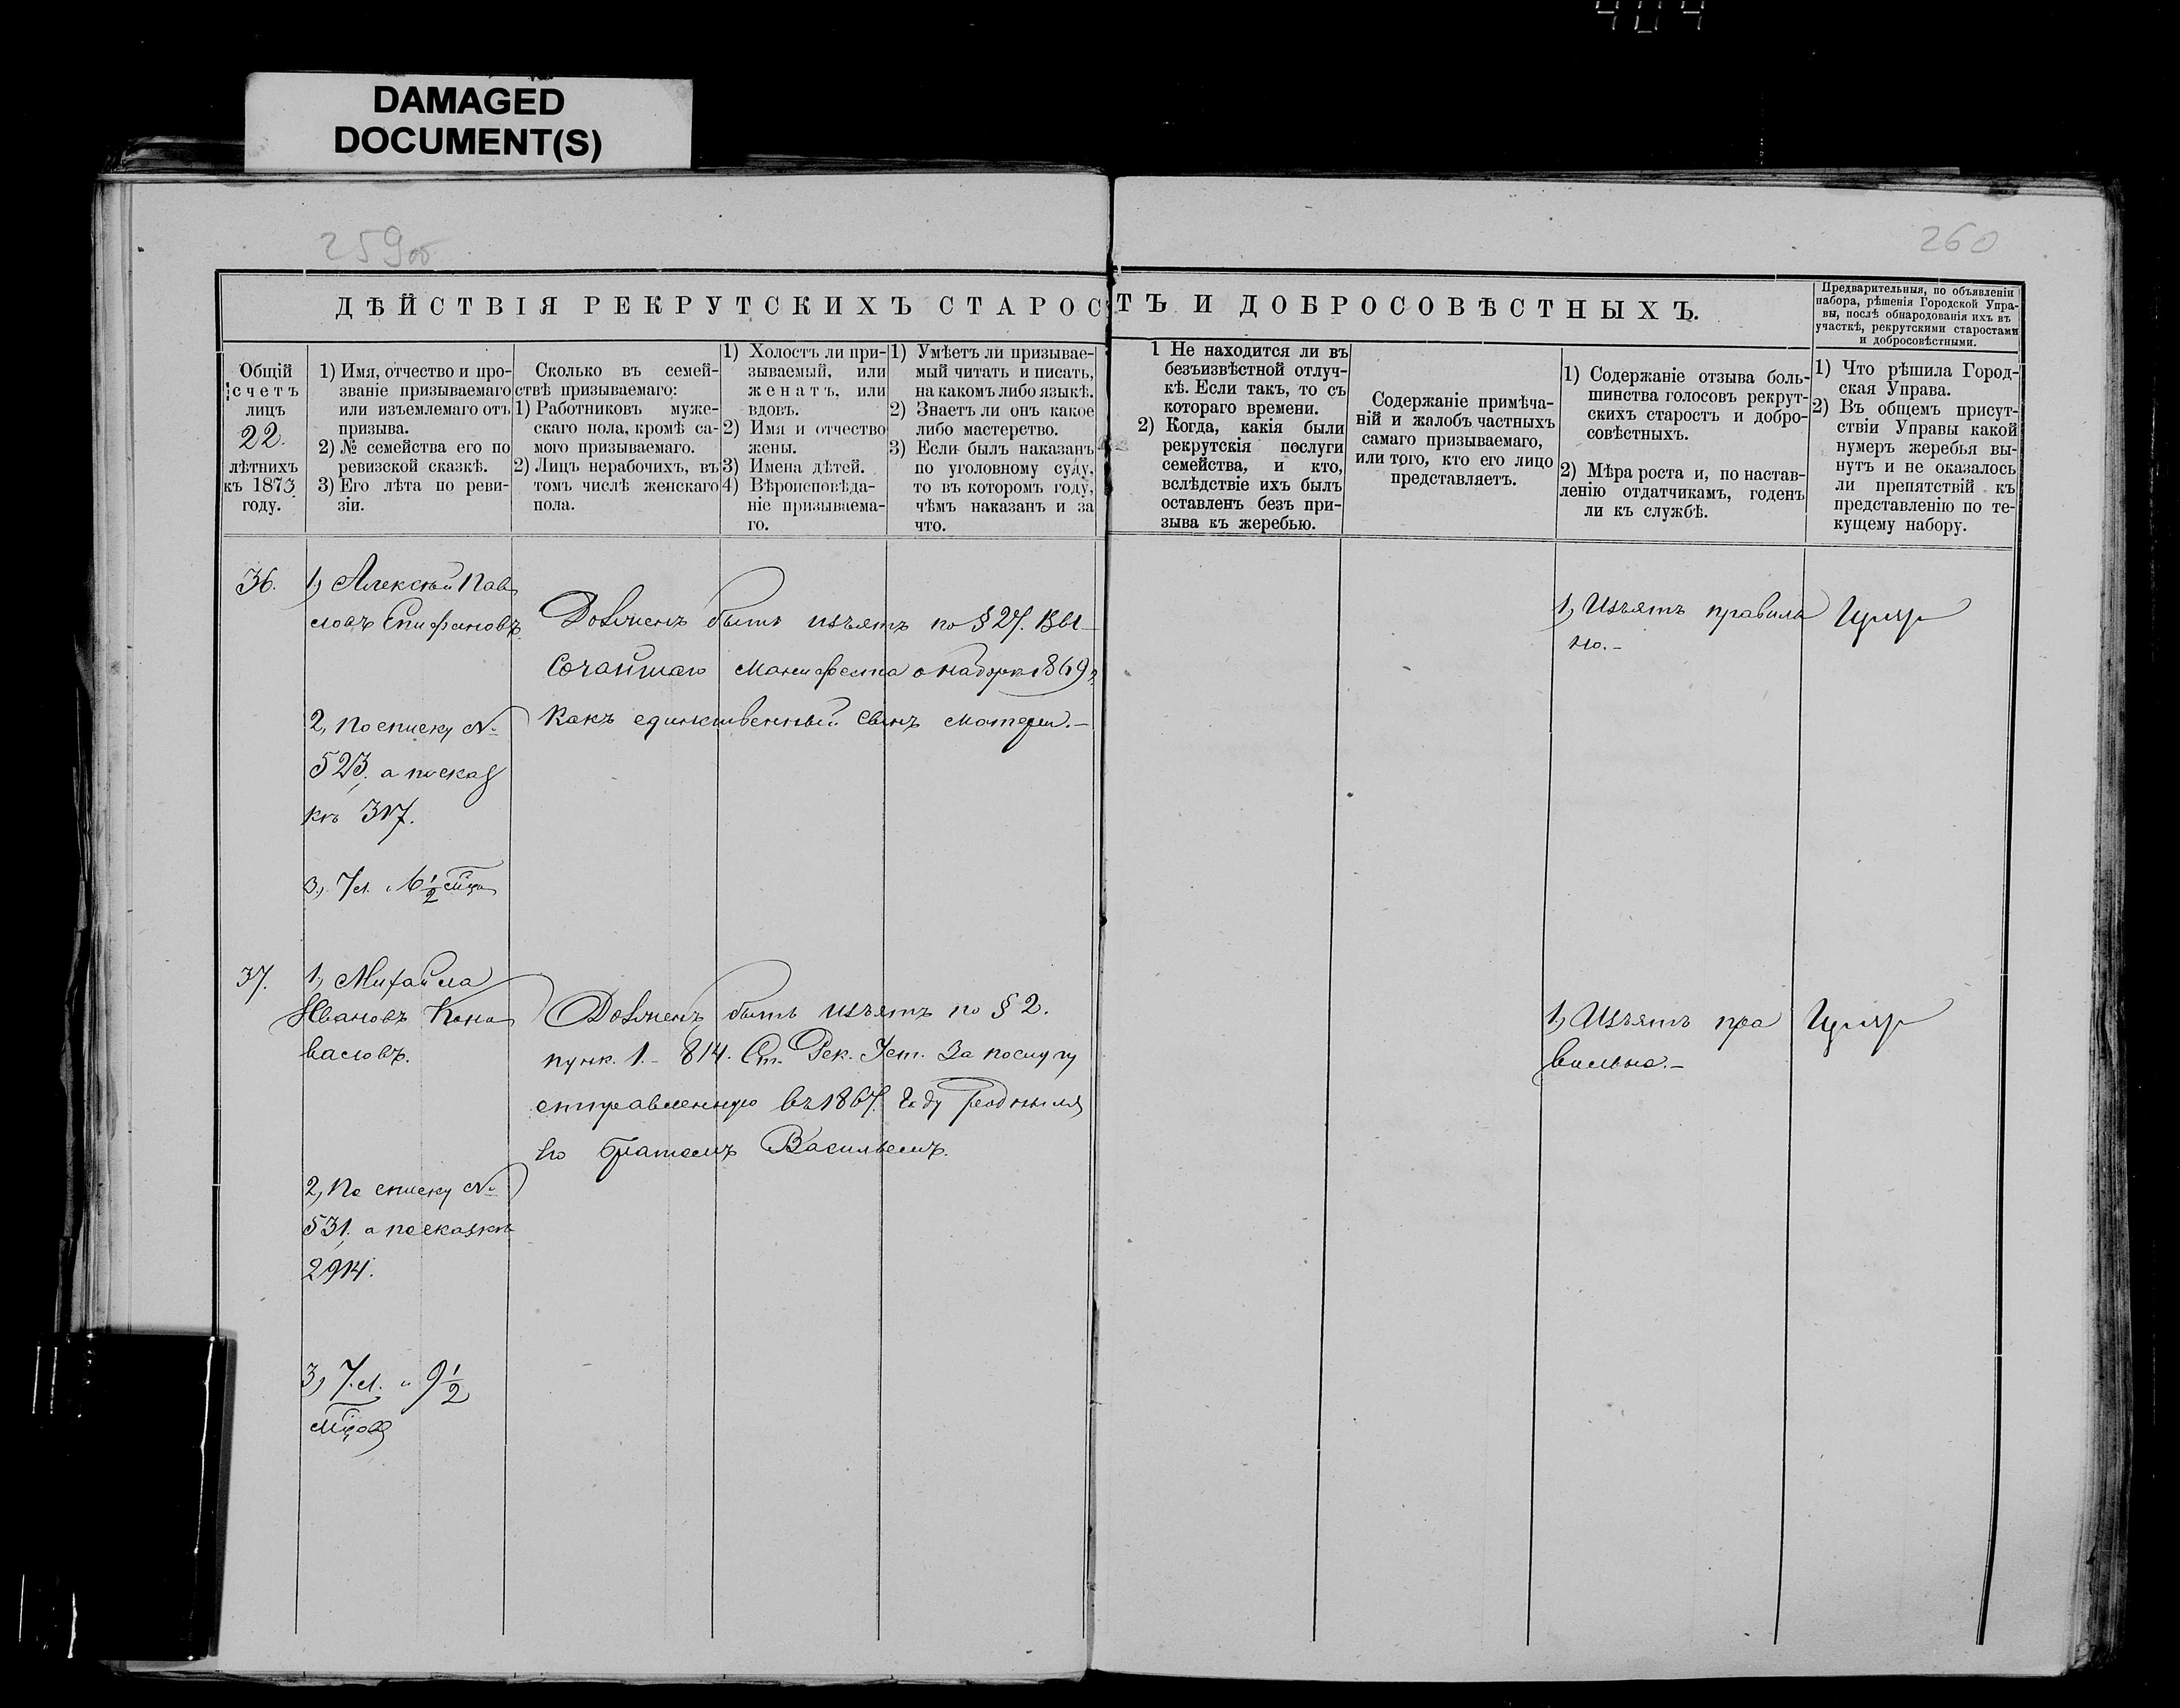 404
DAMAGED
DOCUMENT(S)
259об
260
ДѢЙСТВІЯ РЕКРУТСКИХЪ СТАРОСТЪ И ДОБРОСОВѢСТНЫХЪ.
Предварительныя, по объявленіи
набора, рѣшенія Городской Упра-
вы, послѣ обнародованія ихъ въ
участкѣ, рекрутскими старостами
и добросовѣстными.
Общій
счетъ
лицъ
22.
лѣтнихъ
къ 1873
году.
1) Имя, отчество и про-
званіе призываемаго
или изъемлемаго отъ
призыва.
2) № семейства его по
ревизской сказкѣ.
3) Его лѣта по реви-
зіи.
Сколько въ семей-
ствѣ призываемаго:
1) Работниковъ муже-
скаго пола, кромѣ са-
мого призываемаго.
2) Лицъ нерабочихъ, въ
томъ числѣ женскаго
пола.
1) Холостъ ли при-
зываемый, или
женатъ, или
вдовъ.
2) Имя и отчество
жены.
3) Имена дѣтей.
4) Вѣроисповѣда-
ніе призываема-
го.
1) Умѣетъ ли призывае-
мый читать и писать,
на какомъ либо языкѣ.
2) Знаетъ ли онъ какое
либо мастерство.
3) Если былъ наказанъ
по уголовному суду,
то въ которомъ году,
чѣмъ наказанъ и за
что.
1 Не находится ли въ
безъизвѣстной отлуч-
кѣ. Если такъ, то съ
котораго времени.
2) Когда, какія были
рекрутскія послуги
семейства, и кто,
вслѣдствіе ихъ былъ
оставленъ безъ при-
зыва къ жеребью.
Содержаніе примѣча-
ній и жалобъ частныхъ
самаго призываемаго,
или того, кто его лицо
представляетъ.
1) Содержаніе отзыва боль-
шинства голосовъ рекрут-
скихъ старостъ и добро-
совѣстныхъ.
2) Мѣра роста и, по настав-
ленію отдатчикамъ, годенъ
ли къ службѣ.
1) Что рѣшила Город-
ская Управа.
2) Въ общемъ присут-
ствіи Управы какой
нумеръ жеребья вы-
нутъ и не оказалось
ли препятствій къ
представленію по те-
кущему набору.
36.
1, Алексѣй Пав
ловъ Епифановъ
2, по списку №
523, а по сказ
кѣ 317.
3, 7 л. 6 1/2 мѣца
Долженъ быть изъятъ по § 27. Вы-
сочайшаго Манифеста о наборѣ 1869 г.
какъ единственный сынъ матери.-
1, Изъятъ правиль
но.-
37.
1, Михайла
Ивановъ Коно
валовъ.
2, По списку №
531. а по сказкѣ
2914.
3, 7. л. и 9 1/2
мѣцов
Долженъ быть изъятъ по § 2.
пунк. 1.- 814. Ст. Рек. Уст. За послугу
отправленную въ 1867. Году Роднымъ
его братомъ Васильемъ.
1, Изъятъ пра
вильно.-